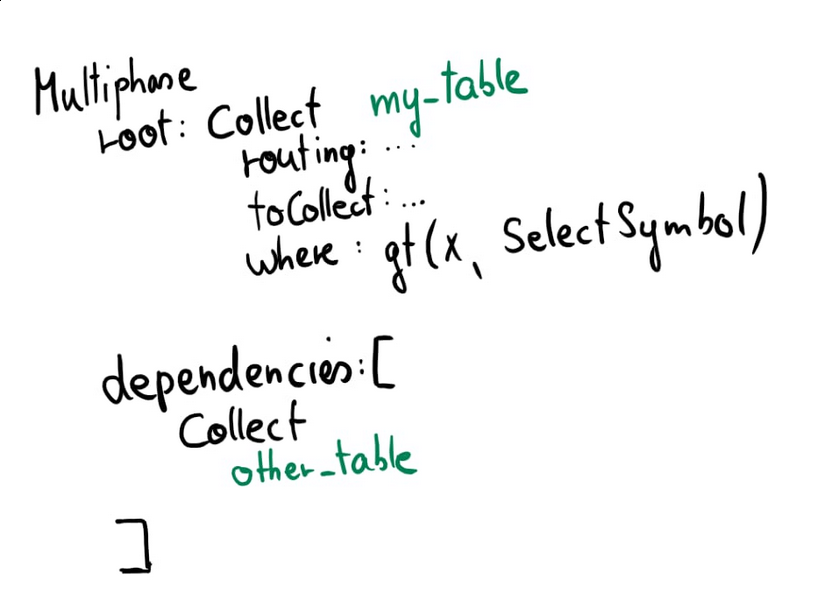 Multiphase
root: Collect my_table
routing: ...
toCollect: ...
where: gt(x, SelectSymbol)
dependencies: [
Collect
other_table
]